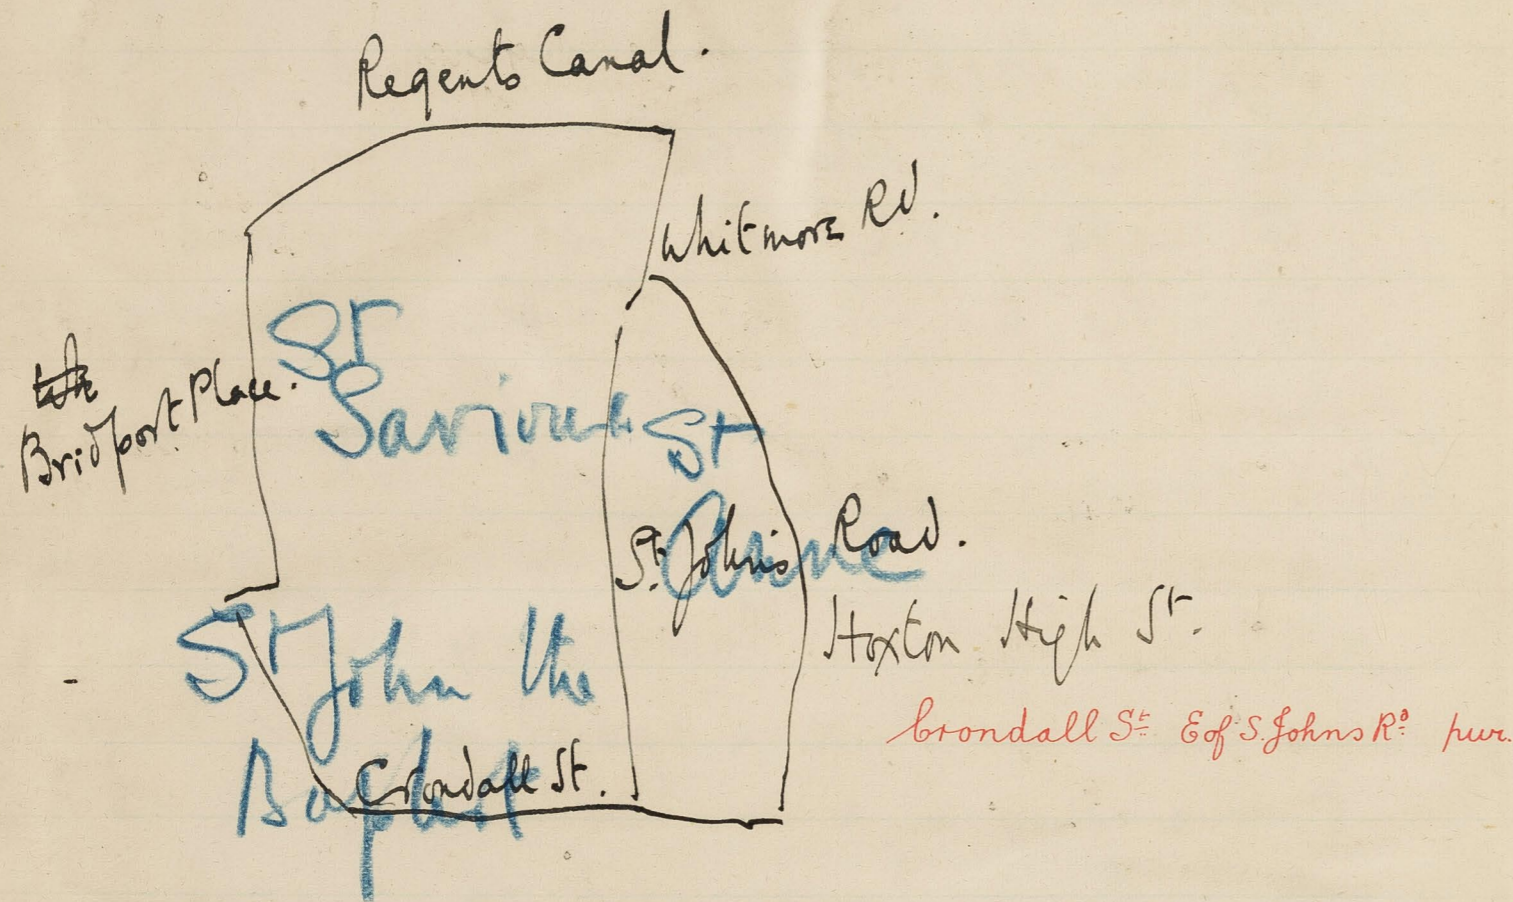 Regents Canal.
Whitmore Rd.
Bridport Place.
St
Saviour
St
Anne
St. Johns Road.
Hoxton High St.
St John the
Baptist
Crondall St.
Crondall St E of S. Johns Rd pur.